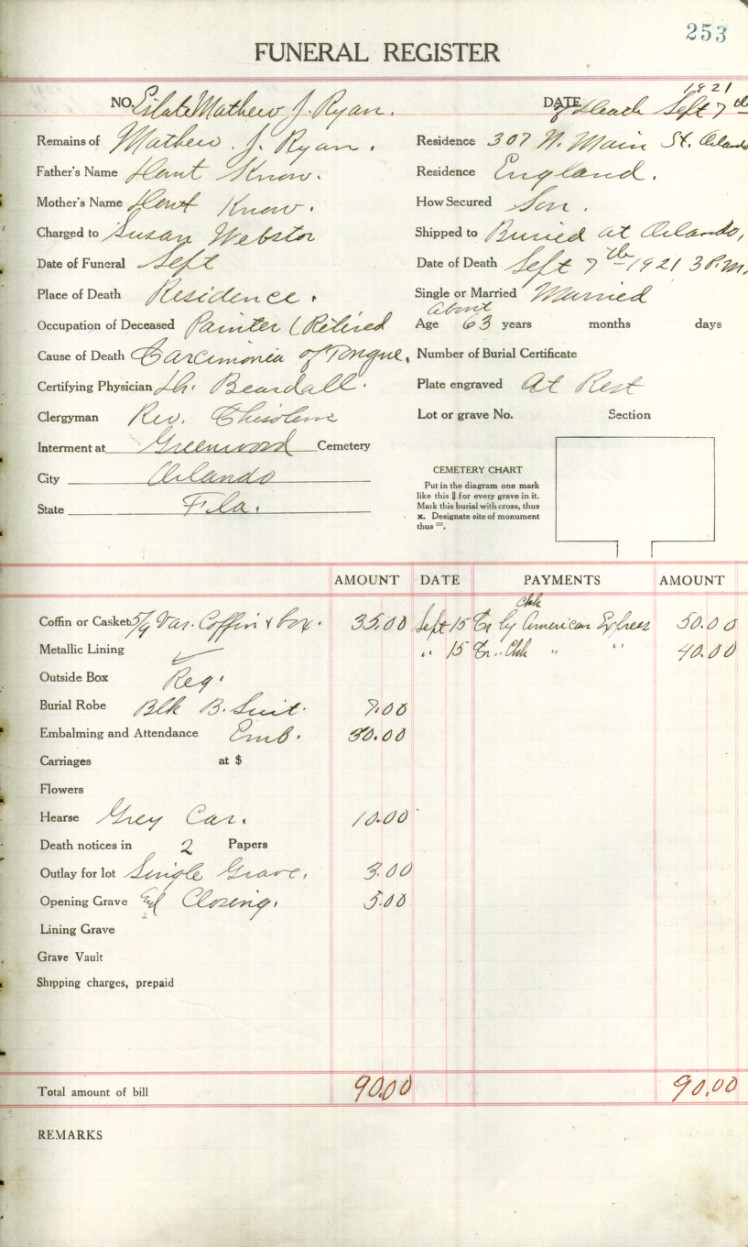 253
FUNERAL REGISTER
1921
NO. Mathew J. Ryan. DATE of death Sept 7th
Remains of Mathew. J. Ryan. Residence 307 N. Main St. Orlando
Father's Name Dont Know. Residence England.
Mother's Name Dont Know. How Secured Son.
Charged to Susan Webstor Shipped to Buried at Orlando,
Date of Funeral Sept Date of Death Sept 7th 1921 3 P.M.
Place of Death Residence. Single or Married Married
about
Occupation of Deceased Painter (Ritired Age 63 years months days
Cause of Death Carcimonia of Tongue. Number of Burial Certificate
Certifying Physician Beardall. Plate engraved At Rest
Clergyman Rev. Lot or grave No. Section
Interment at Greenwood Cemetery
City Orlando
State Fla.
CEMETERY CHART
Put in the diagram one mark
like this for every grave in it.
Mark this burial with cross, thus
x. Designate site of monument
thus =.
AMOUNT DATE PAYMENTS AMOUNT
chk
Coffin or Casket 5/9 Var. Coffin & box. 35.00 Sept 15 Cr by American Express 50.00
Metallic Lining " 15 Cr " Chk " " 40.00
Outside Box Reg.
Burial Robe Blk B. Suit. 7.00
Embalming and Attendance Emb. 30.00
Carriages at $
Flowers
Hearse Grey Car. 10.00
Death notices in 2 Papers
Outlay for lot Single Grave. 3.00
Opening Grave and Closing. 5.00
Lining Grave
Grave Vault
Shipping charges, prepaid
Total amount of bill 90.00 90.00
REMARKS